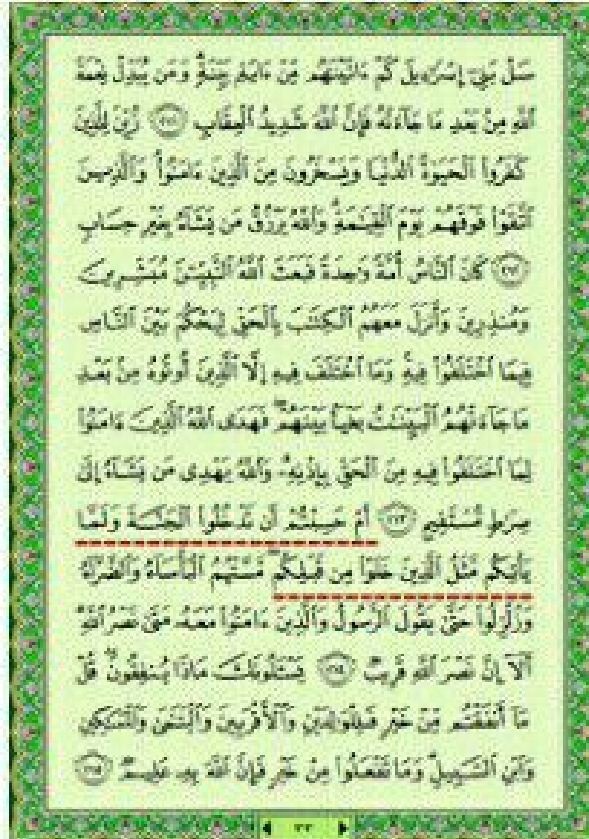 سَلْ بَنِىٓ إِسْرَٰٓءِيلَ كَمْ ءَاتَيْنَٰهُم مِّنْ ءَايَةٍۭ بَيِّنَةٍ ۗ وَمَن يُبَدِّلْ نِعْمَةَ
ٱللَّهِ مِنۢ بَعْدِ مَا جَآءَتْهُ فَإِنَّ ٱللَّهَ شَدِيدُ ٱلْعِقَابِ ﴿٢١١﴾ زُيِّنَ لِلَّذِينَ
كَفَرُوا۟ ٱلْحَيَوٰةُ ٱلدُّنْيَا وَيَسْخَرُونَ مِنَ ٱلَّذِينَ ءَامَنُوا۟ ۘ وَٱلَّذِينَ
ٱتَّقَوْا۟ فَوْقَهُمْ يَوْمَ ٱلْقِيَٰمَةِ ۗ وَٱللَّهُ يَرْزُقُ مَن يَشَآءُ بِغَيْرِ حِسَابٍ
﴿٢١٢﴾ كَانَ ٱلنَّاسُ أُمَّةً وَٰحِدَةً فَبَعَثَ ٱللَّهُ ٱلنَّبِيِّـۧنَ مُبَشِّرِينَ
وَمُنذِرِينَ وَأَنزَلَ مَعَهُمُ ٱلْكِتَٰبَ بِٱلْحَقِّ لِيَحْكُمَ بَيْنَ ٱلنَّاسِ
فِيمَا ٱخْتَلَفُوا۟ فِيهِ ۚ وَمَا ٱخْتَلَفَ فِيهِ إِلَّا ٱلَّذِينَ أُوتُوهُ مِنۢ بَعْدِ
مَا جَآءَتْهُمُ ٱلْبَيِّنَٰتُ بَغْيًۢا بَيْنَهُمْ ۖ فَهَدَى ٱللَّهُ ٱلَّذِينَ ءَامَنُوا۟
لِمَا ٱخْتَلَفُوا۟ فِيهِ مِنَ ٱلْحَقِّ بِإِذْنِهِۦ ۗ وَٱللَّهُ يَهْدِى مَن يَشَآءُ إِلَىٰ
صِرَٰطٍ مُّسْتَقِيمٍ ﴿٢١٣﴾ أَمْ حَسِبْتُمْ أَن تَدْخُلُوا۟ ٱلْجَنَّةَ وَلَمَّا
يَأْتِكُم مَّثَلُ ٱلَّذِينَ خَلَوْا۟ مِن قَبْلِكُم ۖ مَّسَّتْهُمُ ٱلْبَأْسَآءُ وَٱلضَّرَّآءُ
وَزُلْزِلُوا۟ حَتَّىٰ يَقُولَ ٱلرَّسُولُ وَٱلَّذِينَ ءَامَنُوا۟ مَعَهُۥ مَتَىٰ نَصْرُ ٱللَّهِ ۗ
أَلَآ إِنَّ نَصْرَ ٱللَّهِ قَرِيبٌ ﴿٢١٤﴾ يَسْـَٔلُونَكَ مَاذَا يُنفِقُونَ ۖ قُلْ
مَآ أَنفَقْتُم مِّنْ خَيْرٍ فَلِلْوَٰلِدَيْنِ وَٱلْأَقْرَبِينَ وَٱلْيَتَٰمَىٰ وَٱلْمَسَٰكِينِ
وَٱبْنِ ٱلسَّبِيلِ ۗ وَمَا تَفْعَلُوا۟ مِنْ خَيْرٍ فَإِنَّ ٱللَّهَ بِهِۦ عَلِيمٌ ﴿٢١٥﴾
٣٣